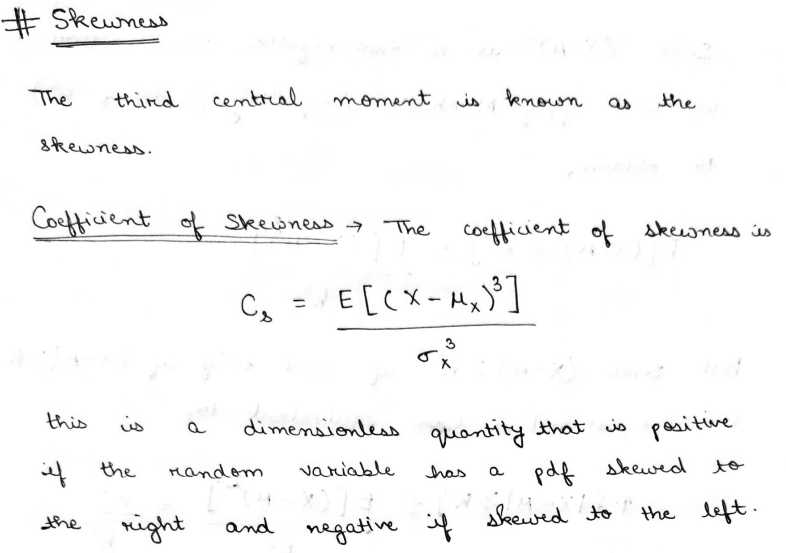 # Skewness
The third central moment is known as the
skewness.
Coefficient of Skewness → The coefficient of skewness is
C_s = E[(X - μ_x)^3] / σ_x^3
this is a dimensionless quantity that is positive
if the random variable has a pdf skewed to
the right and negative if skewed to the left.